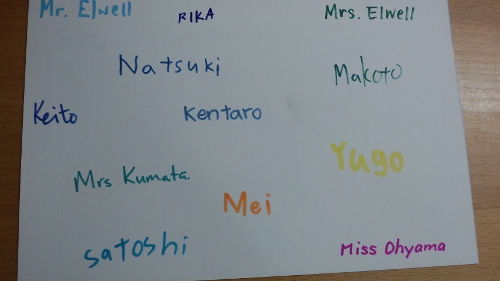 Mr. Elwell
RIKA
Mrs. Elwell
Natsuki
Makoto
Keito
Kentaro
Yugo
Mrs Kumata.
Mei
satoshi
Miss Ohyama